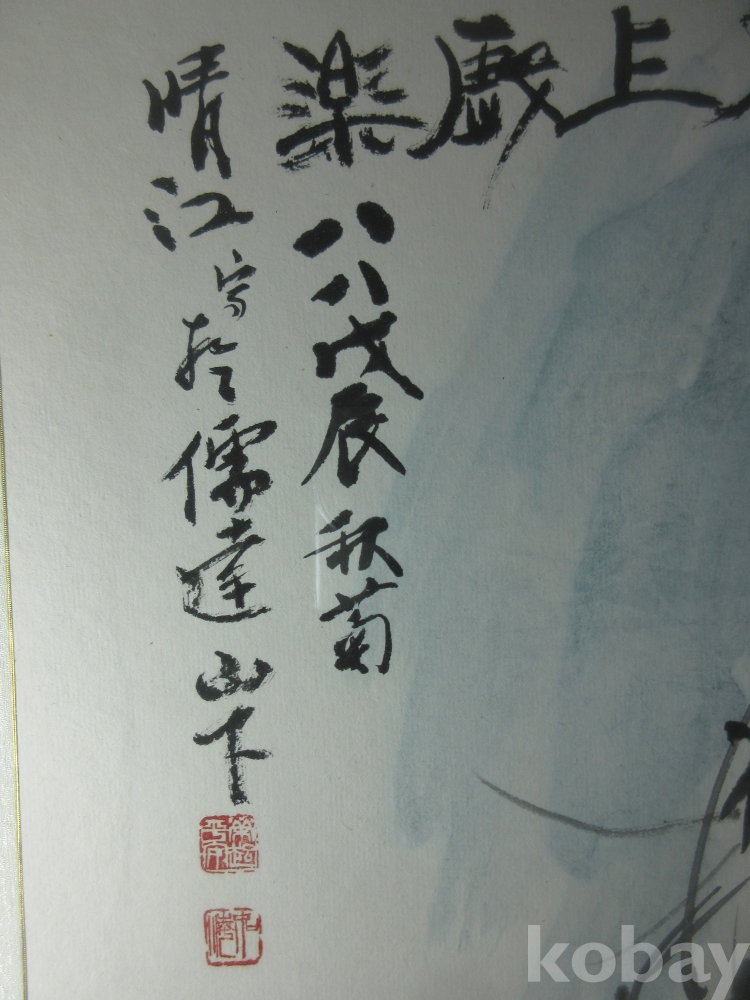 上戲楽
八八戊辰秋菊
晴江写於儒達山下
kobay